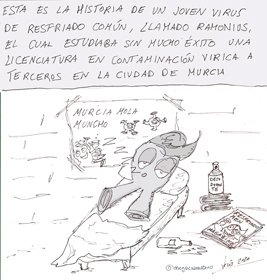 ESTA ES LA HISTORIA DE UN JOVEN VIRUS
DE RESFRIADO COMÚN, LLAMADO RAMONIOS,
EL CUAL ESTUDIABA SIN MUCHO ÉXITO UNA
LICENCIATURA EN CONTAMINACIÓN VIRICA A
TERCEROS EN LA CIUDAD DE MURCIA
MURCIA MOLA
MUNCHO
2020